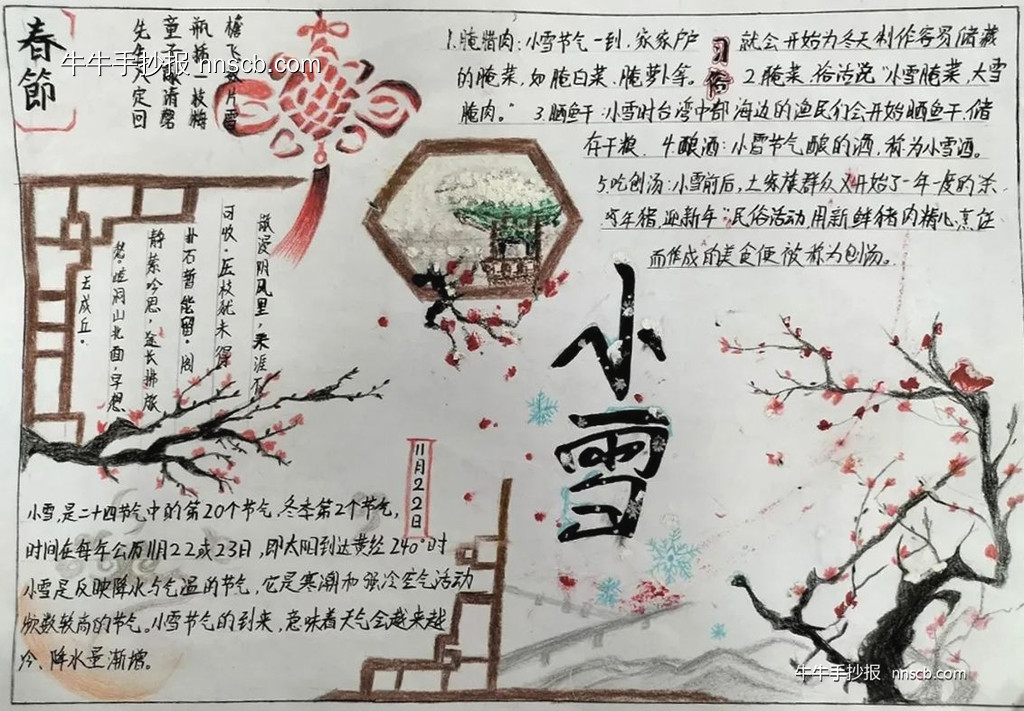 春節
檐飞数片雪
瓶插一枝梅
童子敲清磬
先生入定回
牛牛手抄报 nnscb.com
1.腌腊肉:小雪节气一到,家家户户
习俗
就会开始为冬天制作容易储藏
的腌菜,如腌白菜、腌萝卜等。
2.腌菜,俗话说“小雪腌菜,大雪
腌肉。”
3.晒鱼干:小雪时台湾中部海边的渔民们会开始晒鱼干、储
存干粮.
4.酿酒:小雪节气酿的酒,称为小雪酒。
5.吃刨汤:小雪前后,土家族群众又开始了一年一度的杀
年猪,迎新年”民俗活动,用新鲜猪肉精心烹饪
而作成的美食便被称为刨汤。
散漫阴风里,天涯不
可收。压枝犹未得
扑石暂能留。阁
静萦吟思,途长拂旅
愁。崆峒山北面,早想
玉成丘。
小雪
11月22日
小雪,是二十四节气中的第20个节气,冬季第2个节气,
时间在每年公历11月22或23日,即太阳到达黄经240°时
小雪是反映降水与气温的节气,它是寒潮和强冷空气活动
频数较高的节气。小雪节气的到来,意味着天气会越来越
冷、降水量渐增。
牛牛手抄报 nnscb.com